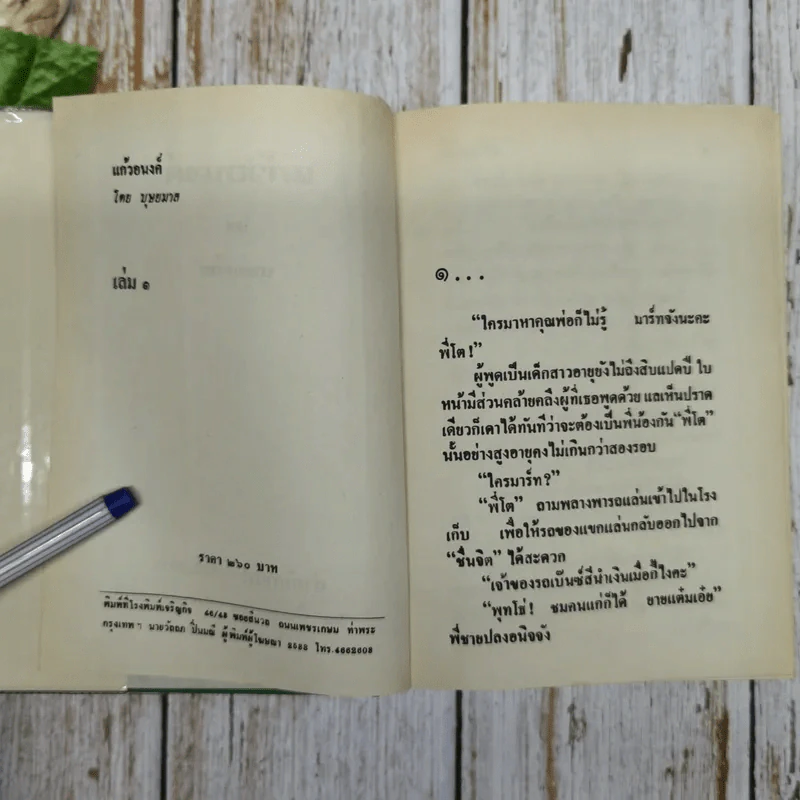 แก้วอนงค์
โดย บุษยมาส
เล่ม ๑
ราคา ๒๖๐ บาท
พิมพ์ที่โรงพิมพ์เจริญกิจ ถนนเพชรเกษม ท่าพระ
กรุงเทพฯ นายวัลลภ ปิ่นมณี ผู้พิมพ์ผู้โฆษณา โทร.
๑...
“ใครมาหาคุณพ่อก็ไม่รู้ มาร์ทจังนะคะ
พี่โต!”
ผู้พูดเป็นเด็กสาวอายุยังไม่ถึงสิบแปดปี ใบ
หน้ามีส่วนคล้ายคลึงผู้ที่เธอพูดด้วย แลเห็นปราด
เดียวก็เดาได้ทันทีว่าจะต้องเป็นพี่น้องกัน “พี่โต”
นั้นอย่างสูงอายุคงไม่เกินกว่าสองรอบ
“ใครมาร์ท?”
“พี่โต” ถามพลางพารถแล่นเข้าไปในโรง
เก็บ เพื่อให้รถของแขกแล่นกลับออกไปจาก
“ชื่นจิต” ได้สะดวก
“เจ้าของรถเบ๊นซ์สีน้ำเงินเมื่อกี้ไงคะ”
“พุทโธ่! ชมคนแก่ก็ได้ ยายแต๋มเอ๋ย”
พี่ชายปลงอนิจจัง